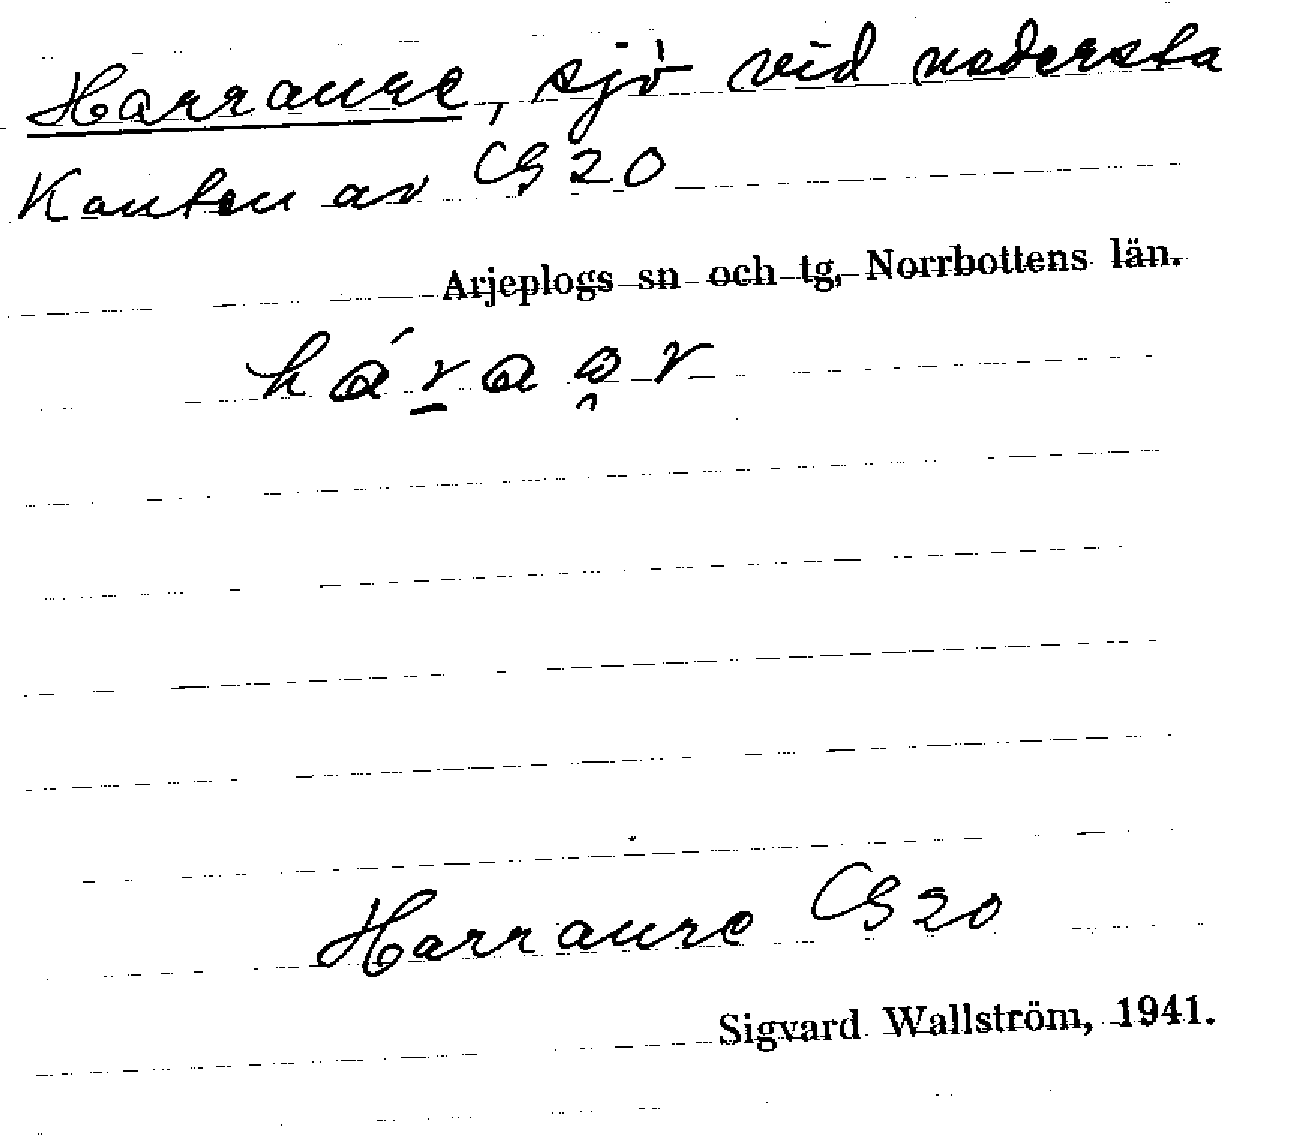 Harraure, sjö vid nedersta
Kanten av CG 20
Arjeplogs sn och tg, Norrbottens län.
Harraure CG 20
Sigvard Wallström, 1941.